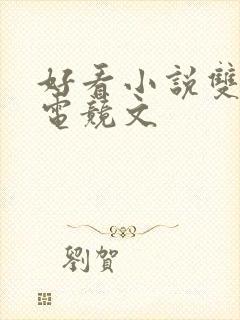 好看小說雙
電競文
劉賀